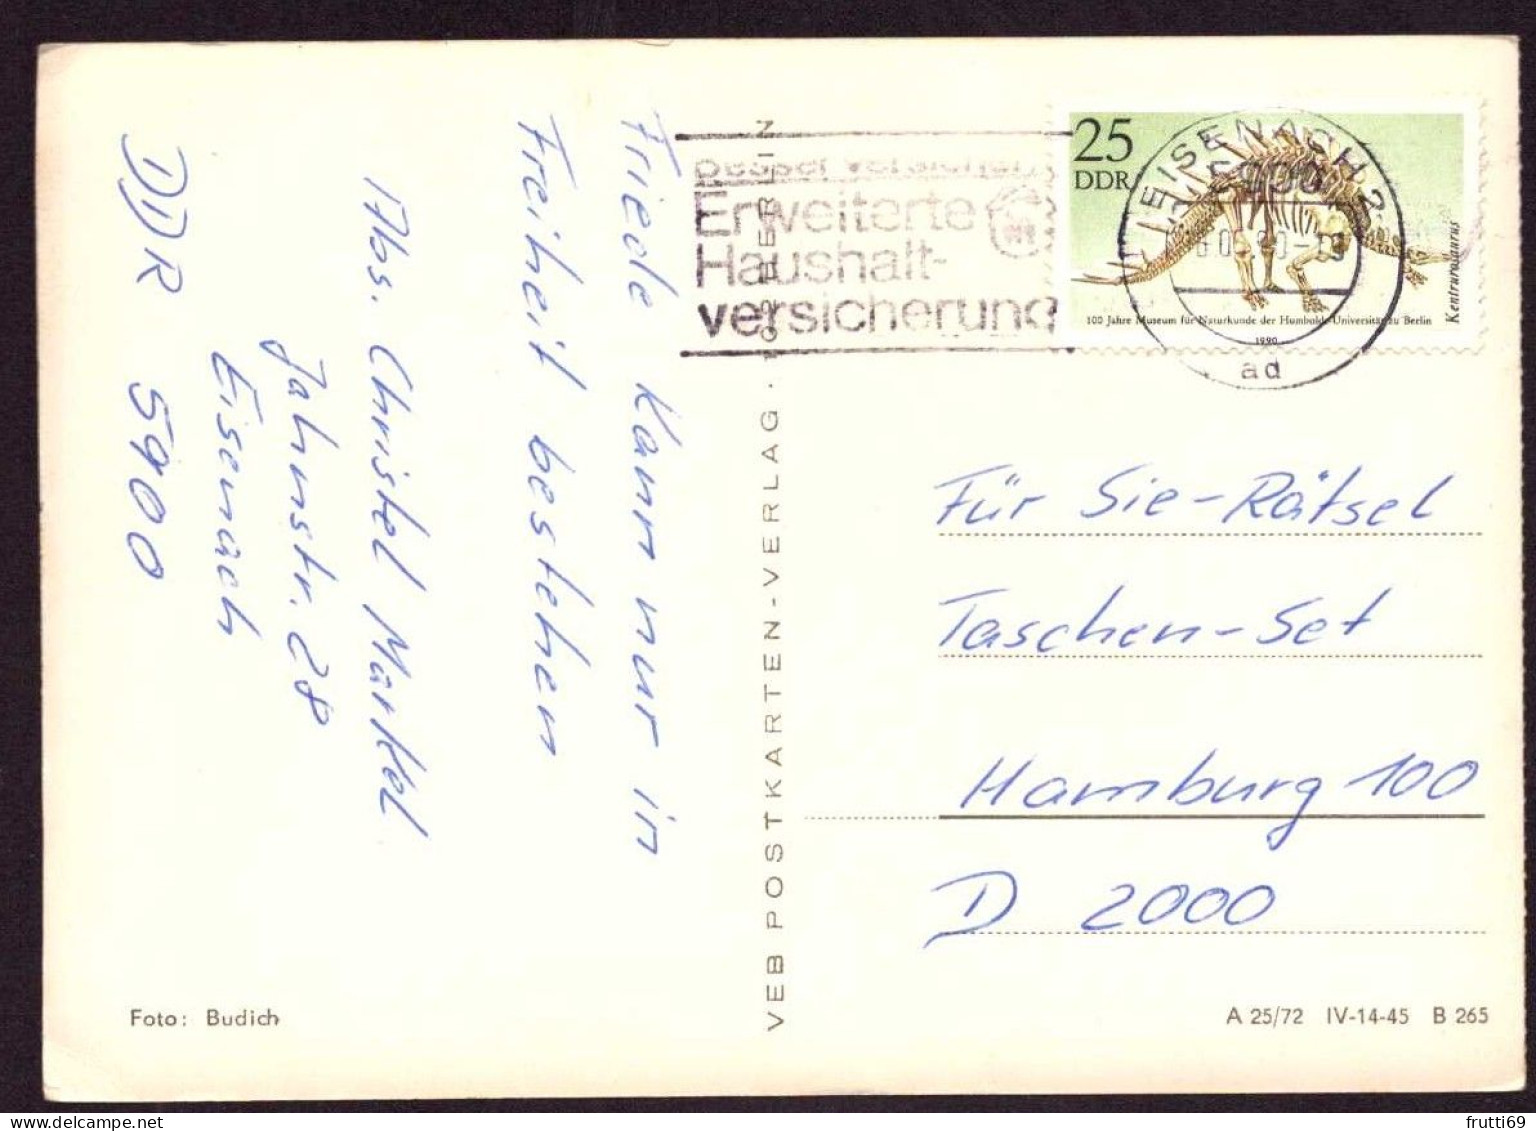 Friede kann nur in
Freiheit bestehen
Abs. Christel Markel
Jahnstr. 28
Eisenach
DDR 5900
Foto: Budich
VEB POSTKARTEN-VERLAG · 102 BERLIN
besser versichern
Erweiterte
Haushalt-
versicherung
25
DDR
Kentrurosaurus
100 Jahre Museum für Naturkunde der Humboldt-Universität zu Berlin
1990
EISENACH 2
5900
ad
Für Sie-Rätsel
Taschen-Set
Hamburg 100
D 2000
A 25/72 IV-14-45 B 265
frutti69